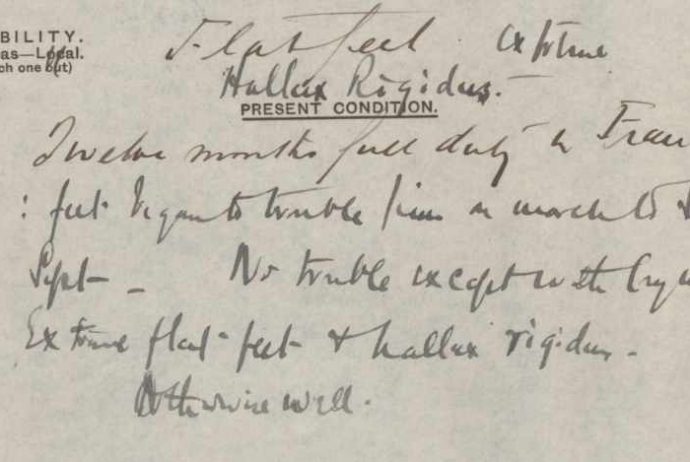 BILITY.
as—Local.
ch one out)
Flat feet extreme
Hallux Rigidus.
PRESENT CONDITION.
Twelve months full duty in Fran
: feet began to trouble him on march to
Sept - No trouble except with
Extreme flat feet & hallux rigidus.
Otherwise well.